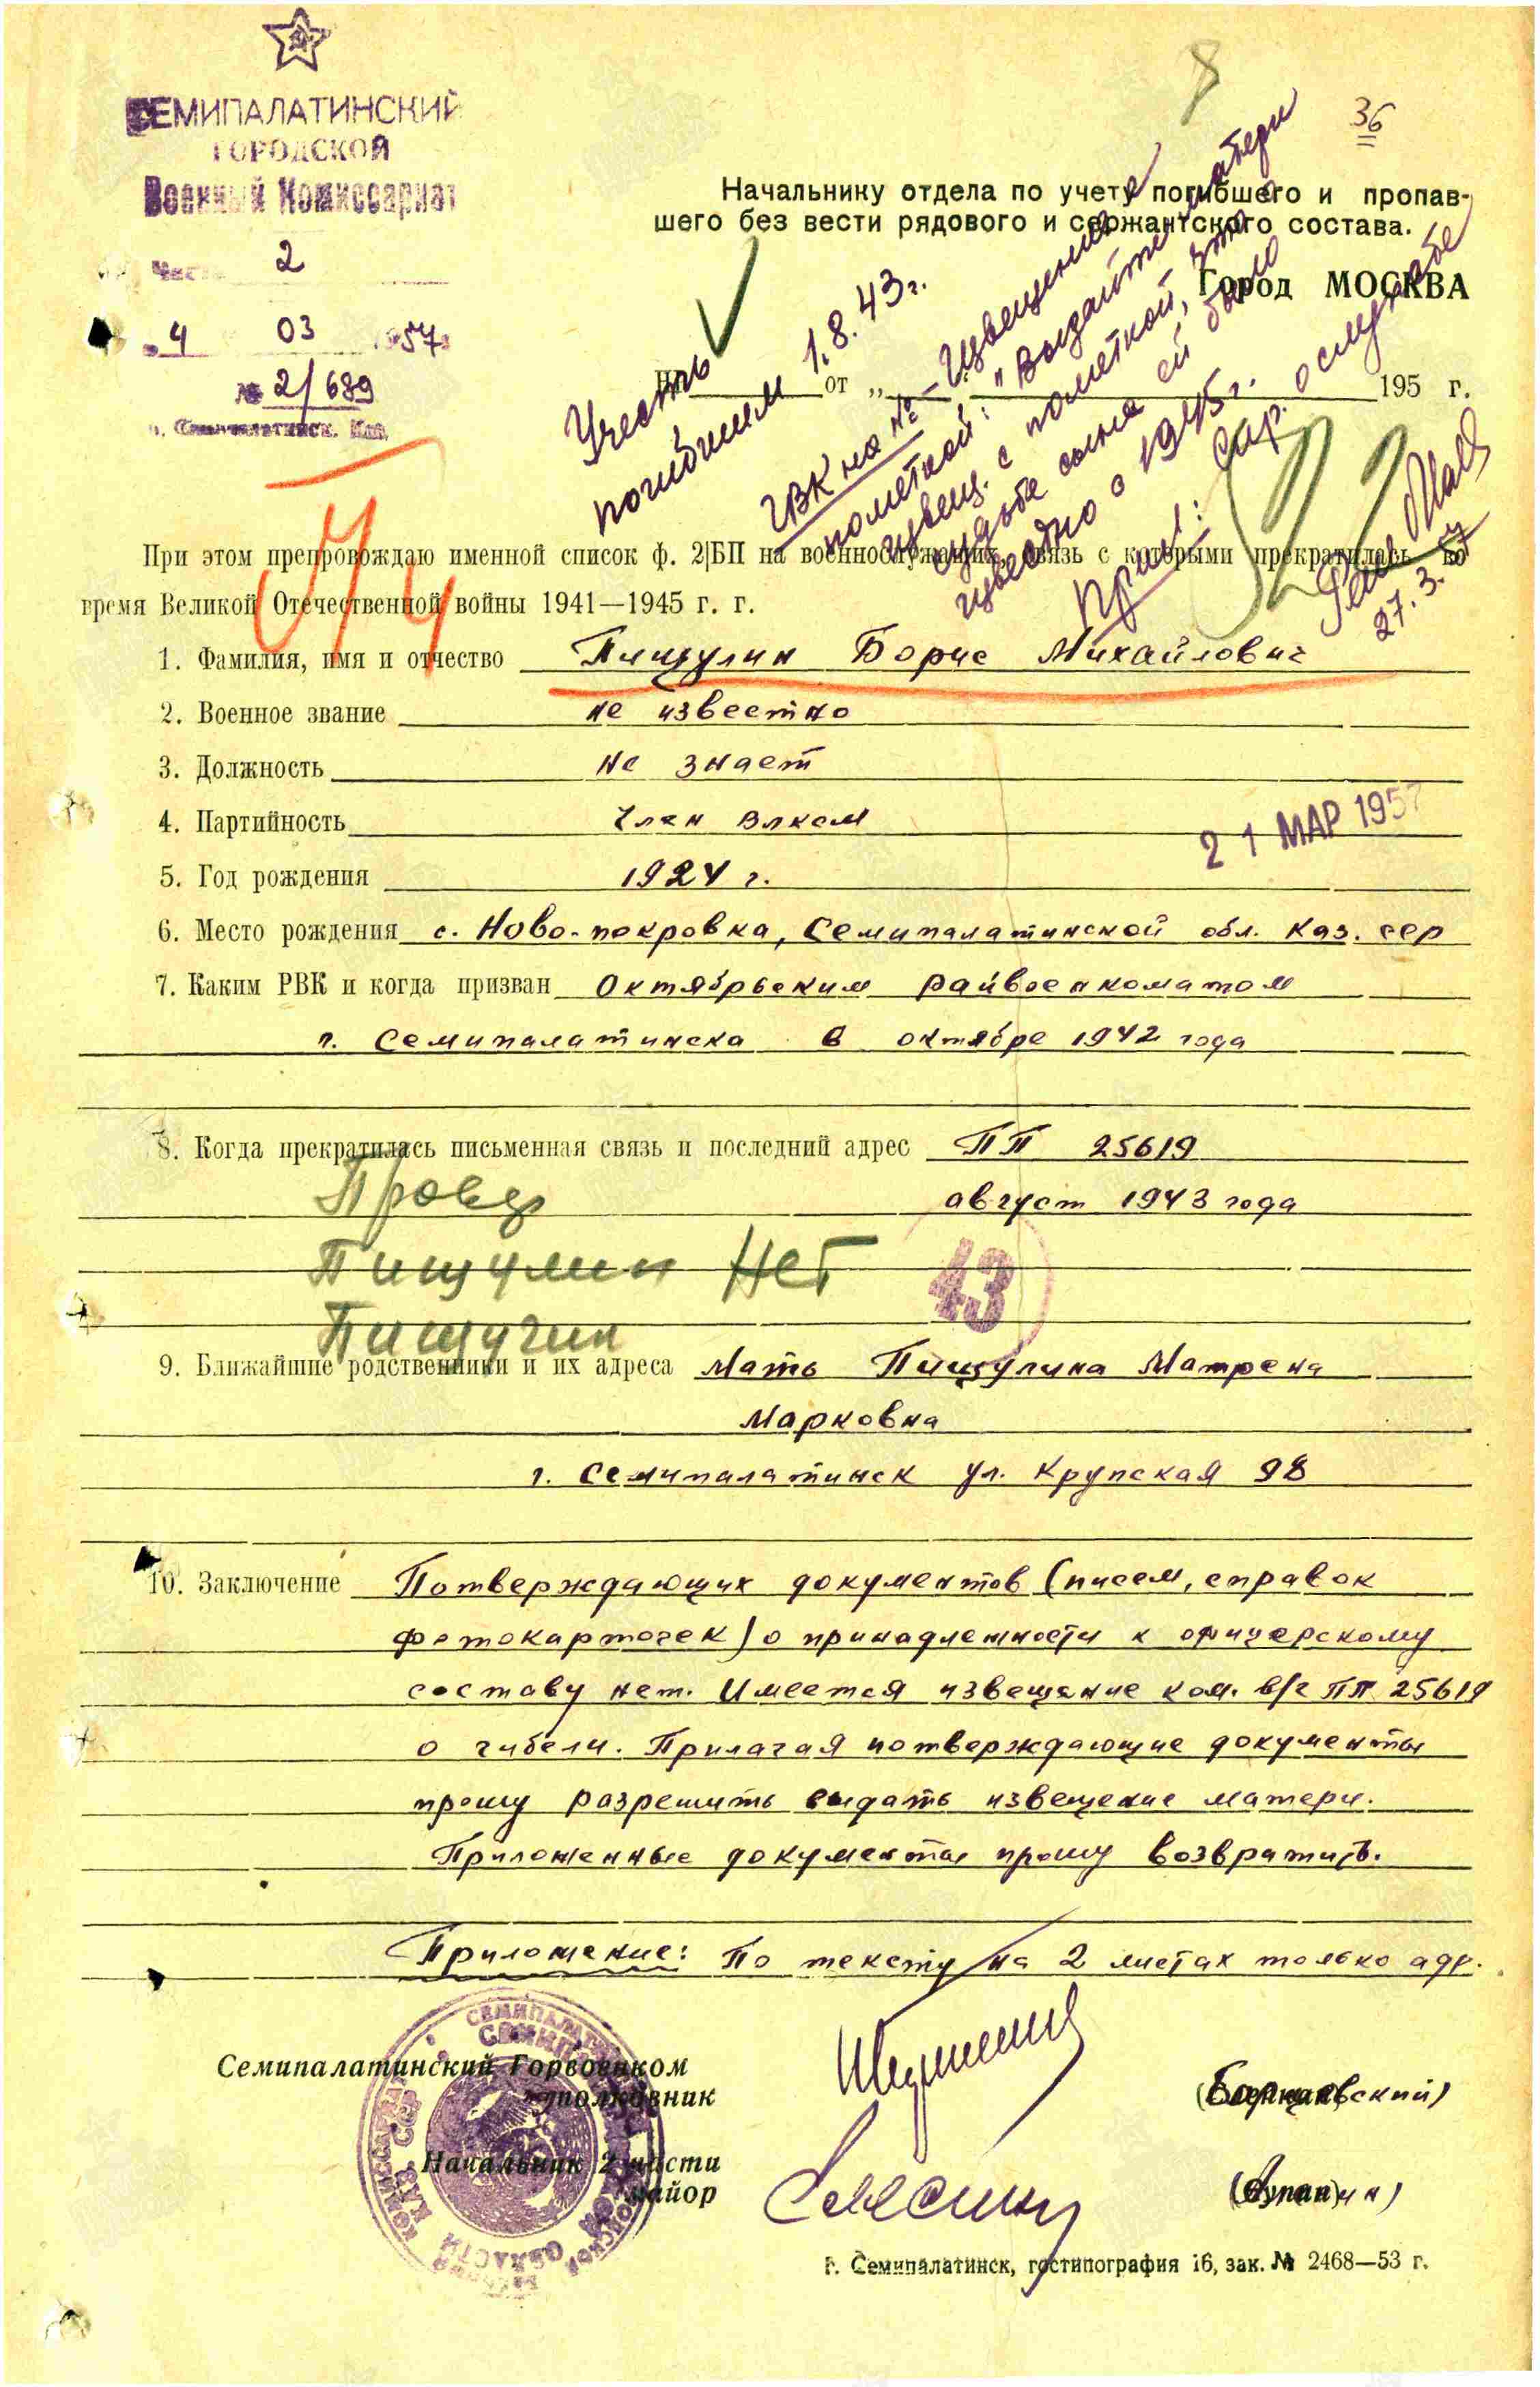 СЕМИПАЛАТИНСКИЙ
ГОРОДСКОЙ
Военный Комиссариат
Часть 2
4 03 1957
№ 2/689
8
36
Начальнику отдела по учету погибшего и пропав-
шего без вести рядового и сержантского состава.
Город МОСКВА
На от „ 195 г.
Учесть
погибшим 1.8.43 г.
ГВК на № – Извещение с
пометкой: "Выдайте матери
извещ. с пометкой, что о
судьбе сына ей было
известно с 1945 г.
Прил: о службе
27.3.57
При этом препровождаю именной список ф. 2|БП на военнослужащих, связь с которыми прекратилась во
время Великой Отечественной войны 1941—1945 г. г.
1. Фамилия, имя и отчество Пищулин Борис Михайлович
2. Военное звание не известно
3. Должность не знает
4. Партийность Член ВЛКСМ
21 МАР 1957
5. Год рождения 1924 г.
6. Место рождения с. Ново-покровка, Семипалатинской обл. Каз. ССР
7. Каким РВК и когда призван Октябрьским райвоенкоматом
г. Семипалатинска в октябре 1942 года
8. Когда прекратилась письменная связь и последний адрес ПП 25619
август 1943 года
Пищулин Нет
43
9. Ближайшие родственники и их адреса Мать Пищулина Матрена
Марковна
г. Семипалатинск ул. Крупская 98
10. Заключение Потверждающих документов (писем, справок
фотокарточек) о принадлежности к офицерскому
составу нет. Имеется извещение ком. в/ч ПП 25619
о гибели. Прилагая потверждающие документы
прошу разрешить выдать извещение матери.
Приложенные документы прошу возвратить.
Приложение: По тексту на 2 листах только адр.
Семипалатинский Горвоенком
полковник
Начальник 2 части
майор
г. Семипалатинск, гостипография 16, зак. № 2468—53 г.